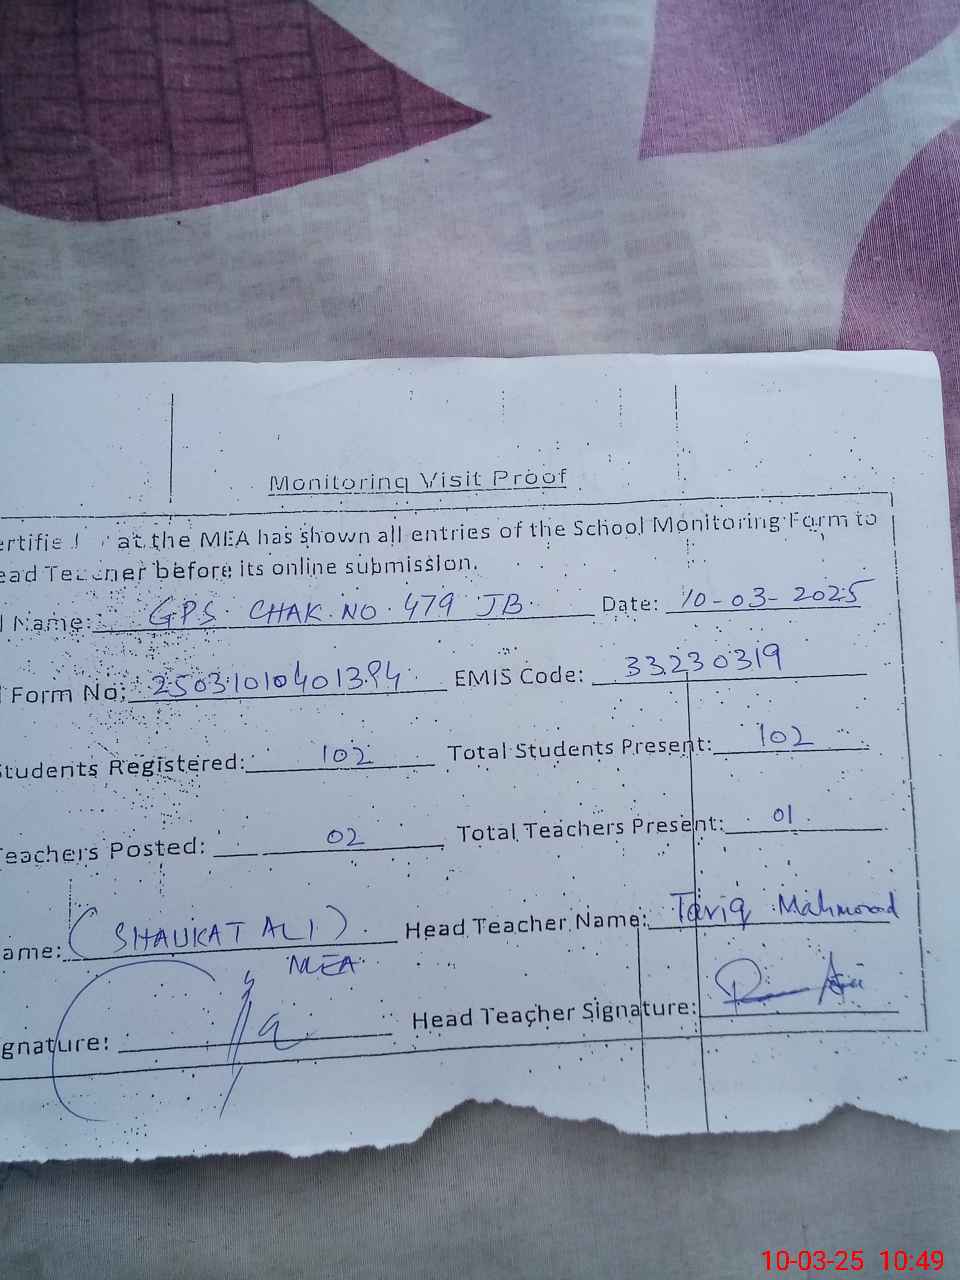 Monitoring Visit Proof
at the MEA has shown all entries of the School Monitoring Form to
before its online submission.
Name: GPS. CHAK. NO. 479 JB. Date: 10-03-2025
Form No: EMIS Code: 33230319
Students Registered: 102 Total Students Present: 102
Teachers Posted: 02 Total Teachers Present: 01
ame: (SHAUKAT ALI) Head Teacher Name: Tariq Mahmood
MEA
gnature: Head Teacher Signature:
10-03-25 10:49